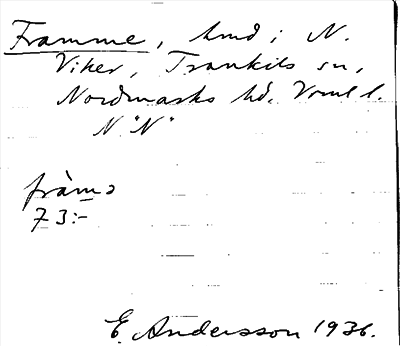 Framme, hmd i N.
Viker, Trankils sn,
Nordmarks hd. Vrml l.
N "N"
fràmɔ
73:-
E. Andersson 1936.